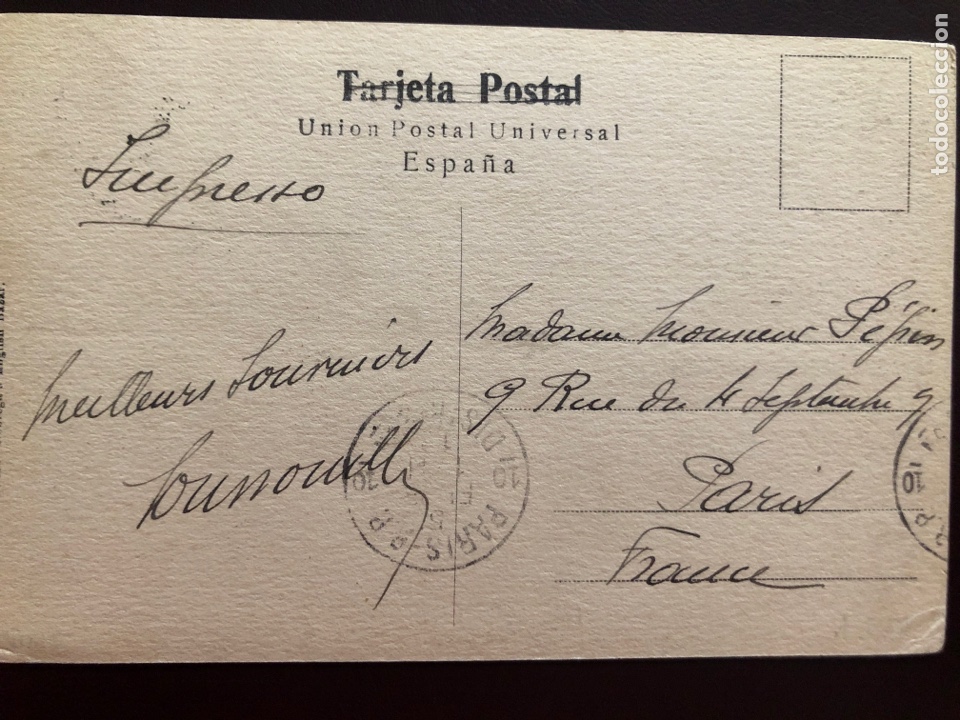 Tarjeta Postal
Union Postal Universal
España
Impresso
Meilleurs Souvenirs
Madame Monsieur Pépin
9 Rue du 4 Septembre 9
Paris
France
PARIS R.P.
10
R.P. 10
English Bazar.
todocoleccion